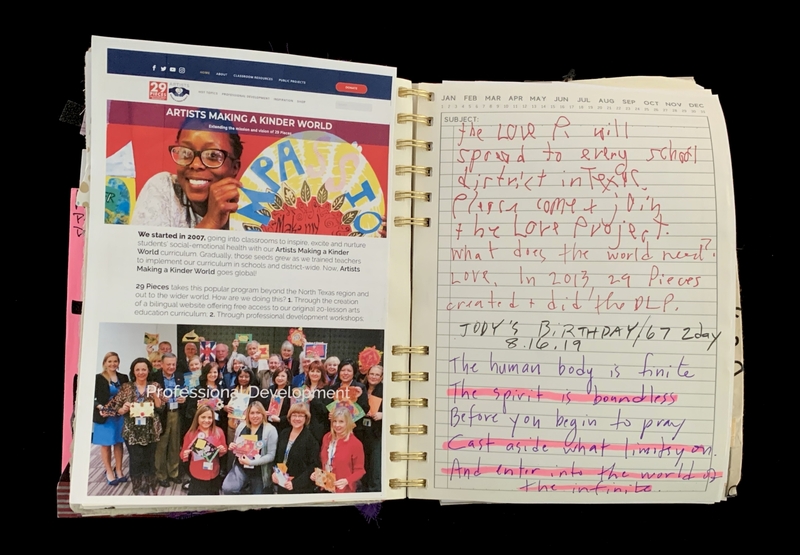 HOME ABOUT CLASSROOM RESOURCES PUBLIC PROJECTS
DONATE
29
PIECES
ARTISTS MAKING A KINDER WORLD
Extending the mission and vision of 29 Pieces
MPASSIO
We started in 2007, going into classrooms to inspire, excite and nurture
students' social-emotional health with our Artists Making a Kinder
World curriculum. Gradually, those seeds grew as we trained teachers
to implement our curriculum in schools and district-wide. Now, Artists
Making a Kinder World goes global!
29 Pieces takes this popular program beyond the North Texas region and
out to the wider world. How are we doing this? 1. Through the creation
of a bilingual website offering free access to our original 20-lesson arts
education curriculum. 2. Through professional development workshops,
Professional Development
JAN FEB MAR APR MAY JUN JUL AUG SEP OCT NOV DEC
SUBJECT:
the LOVE P. will
spread to every school
district in Texas.
Please come + join
the Love Project.
What does the world need?
Love. In 2013 29 Pieces
created + did the DLP.
JODY'S BIRTHDAY/67 2day
8.16.19
The human body is finite
The spirit is boundless
Before you begin to pray
Cast aside what limits you.
And enter into the world of
the infinite.